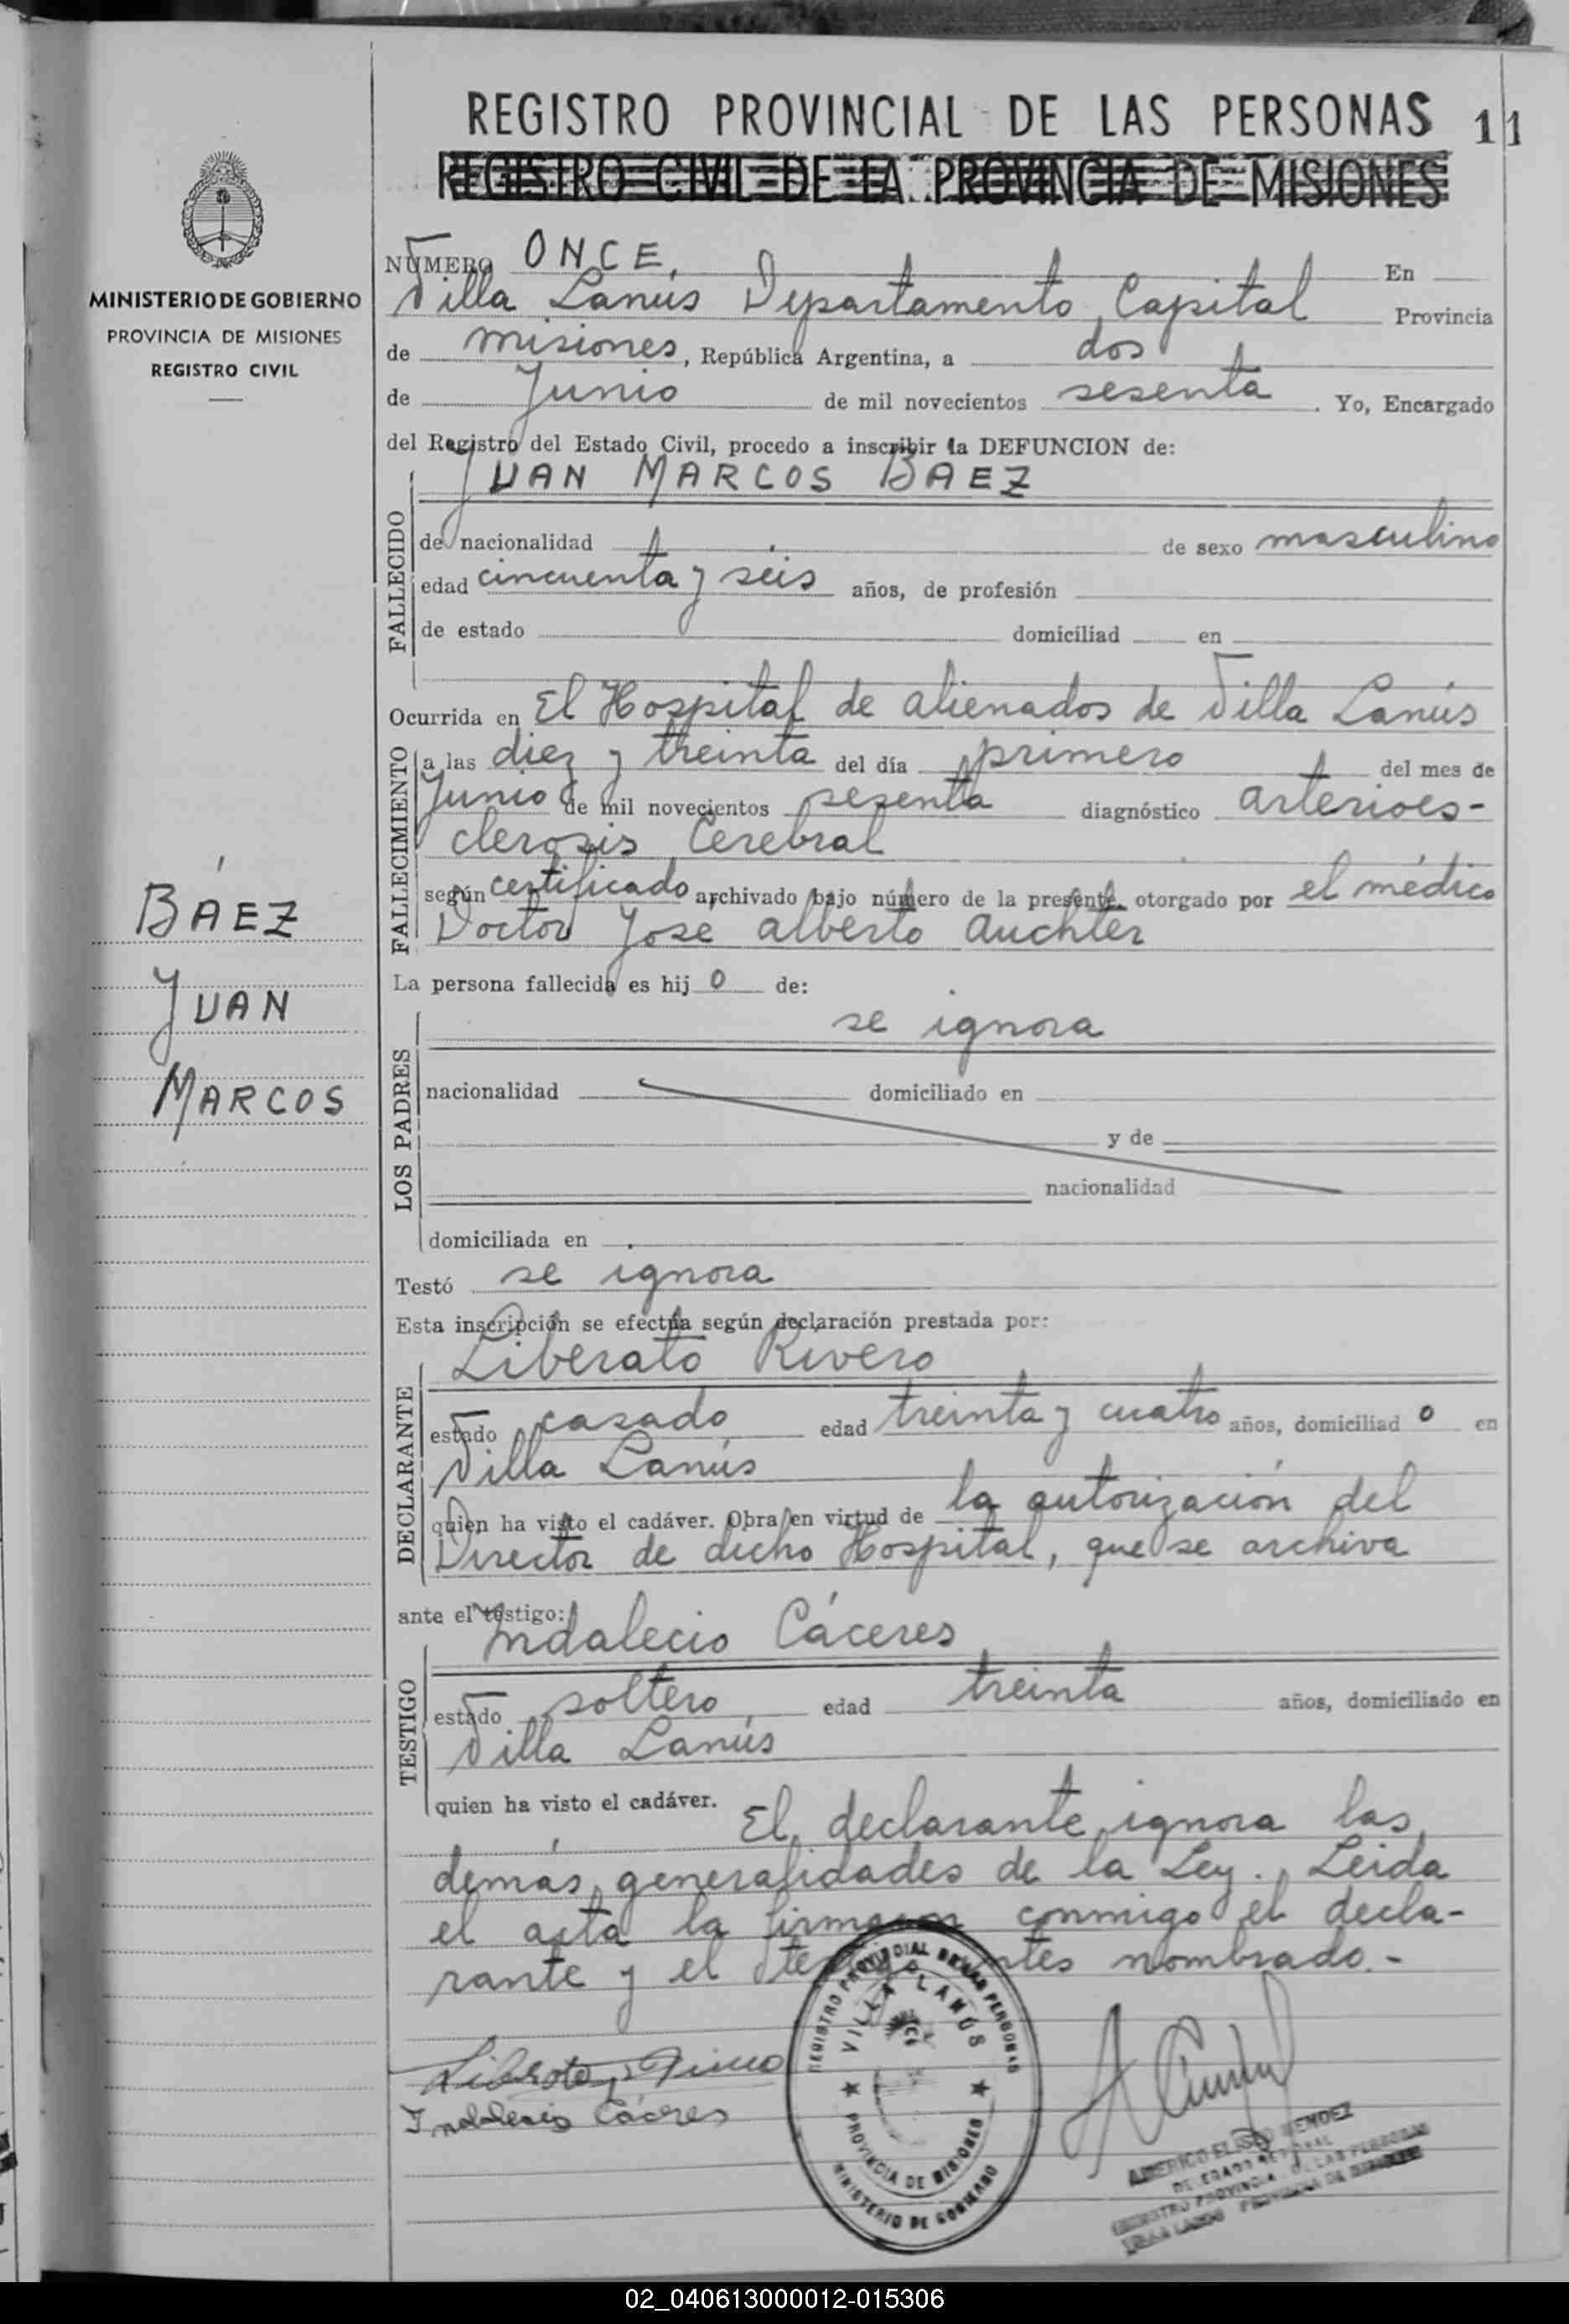 REGISTRO PROVINCIAL DE LAS PERSONAS 11
REGISTRO CIVIL DE LA PROVINCIA DE MISIONES
MINISTERIO DE GOBIERNO
PROVINCIA DE MISIONES
REGISTRO CIVIL
BÁEZ
JUAN
MARCOS
NÚMERO ONCE, En
Villa Lanús Departamento Capital Provincia
de misiones, República Argentina, a dos
de Junio de mil novecientos sesenta. Yo, Encargado
del Registro del Estado Civil, procedo a inscribir la DEFUNCION de:
JUAN MARCOS BAEZ
FALLECIDO
de nacionalidad de sexo masculino
edad cincuenta y séis años, de profesión
de estado domiciliad en
Ocurrida en El Hospital de alienados de Villa Lanús
FALLECIMIENTO
a las diez y treinta del día primero del mes de
Junio de mil novecientos sesenta diagnóstico arterioes-
clerosis Cerebral
según certificado archivado bajo número de la presente, otorgado por el médico
Doctor José alberto Auchter
La persona fallecida es hijo de:
LOS PADRES
se ignora
nacionalidad domiciliado en
y de
nacionalidad
domiciliada en
Testó se ignora
Esta inscripción se efectúa según declaración prestada por:
DECLARANTE
Liberato Rivero
estado casado edad treinta y cuatro años, domiciliado en
Villa Lanús
quien ha visto el cadáver. Obra en virtud de la autorización del
Director de dicho Hospital, que se archiva
ante el testigo:
TESTIGO
Indalecio Cáceres
estado soltero, edad treinta años, domiciliado en
Villa Lanús
quien ha visto el cadáver. El declarante ignora las
demás generalidades de la Ley. Leida
el acta la firmaron conmigo el decla-
rante y el testigo antes nombrado.-
Indalecio Cáceres
REGISTRO PROVINCIAL DE LAS PERSONAS
VILLA LANÚS
PROVINCIA DE MISIONES
MINISTERIO DE GOBIERNO
AMERICO ELISEO MENDEZ
REGISTRO PROVINCIAL DE LAS PERSONAS
VILLA LANUS PROVINCIA DE MISIONES
02_040613000012-015306